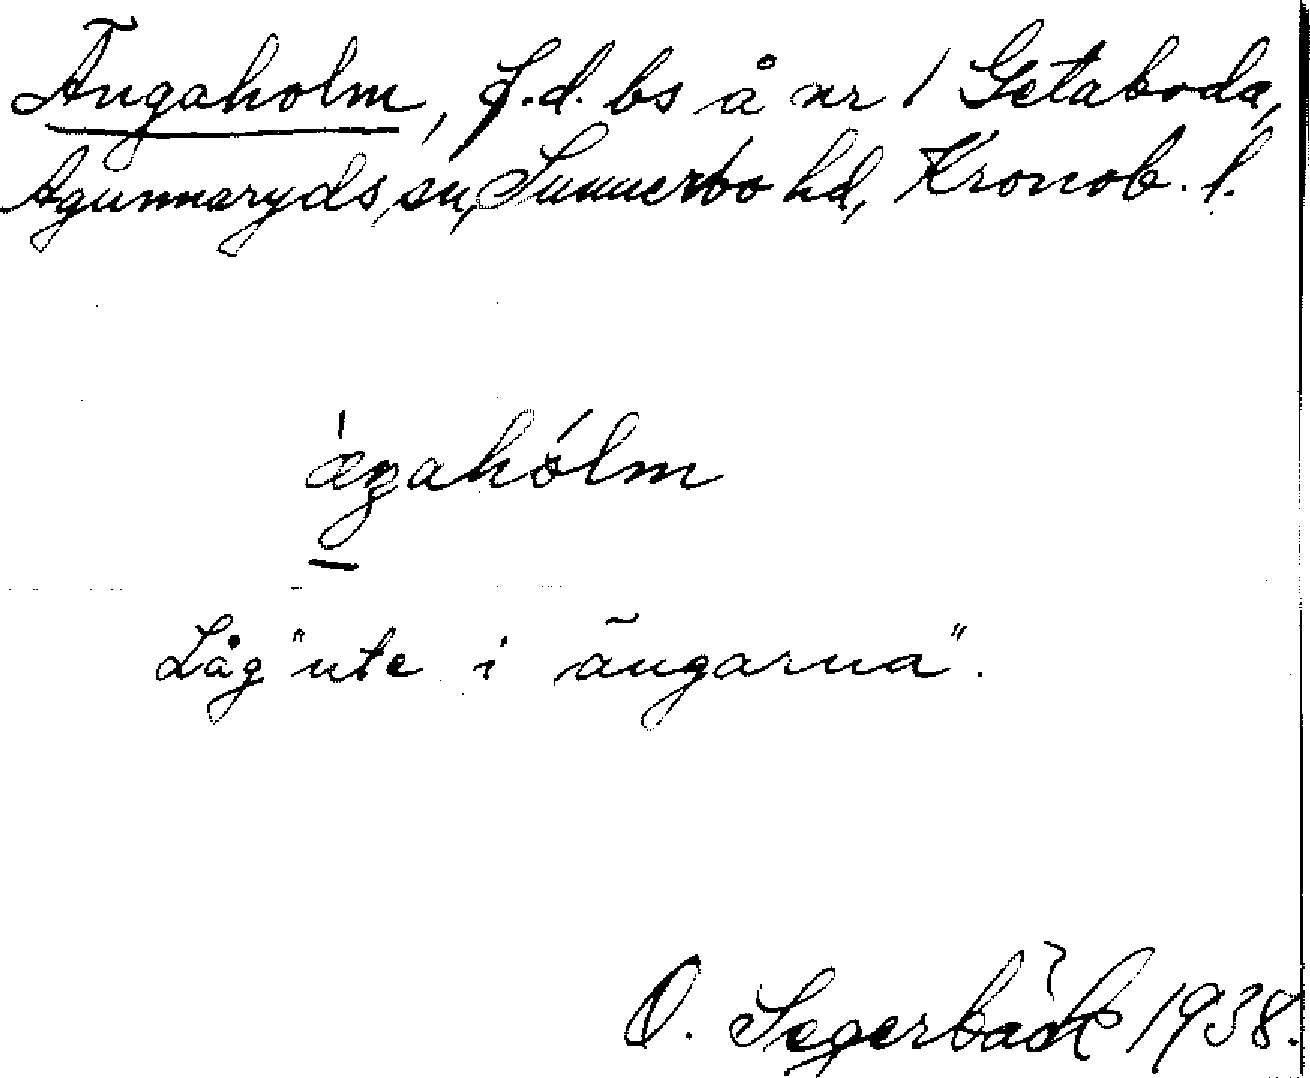 Ängaholm, f.d. bs å nr 1 Getaboda,
Agunnaryds sn, Sunnerbo hd, Kronob. l.
æŋahólm
Låg "ute i ängarna".
O. Segerbäck 1938.